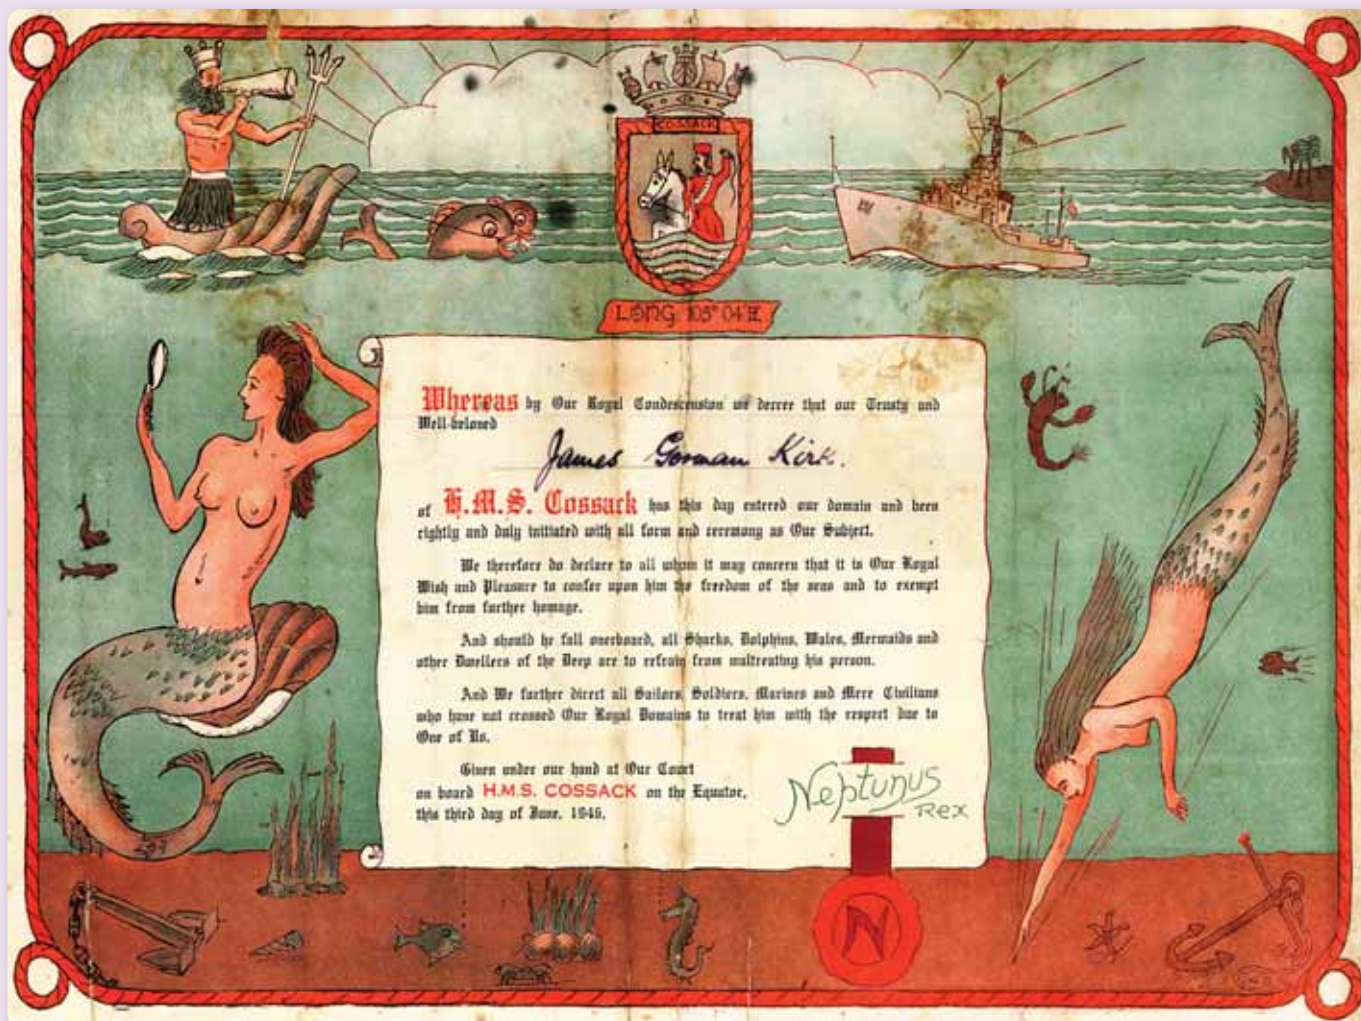 COSSACK
LONG 105° 04' E
Whereas by Our Royal Condescension we decree that our Trusty and
Well-beloved
James Gorman Kirk.
of H.M.S. Cossack has this day entered our domain and been
rightly and duly initiated with all form and ceremony as Our Subject.
We therefore do declare to all whom it may concern that it is Our Royal
Wish and Pleasure to confer upon him the freedom of the seas and to exempt
him from further homage.
And should he fall overboard, all Sharks, Dolphins, Wales, Mermaids and
other Dwellers of the Deep are to refrain from maltreating his person.
And We further direct all Sailors, Soldiers, Marines and Mere Civilians
who have not crossed Our Royal Domains to treat him with the respect due to
One of Us.
Given under our hand at Our Court
on board H.M.S. COSSACK on the Equator,
this third day of June,
Neptunus
Rex
N